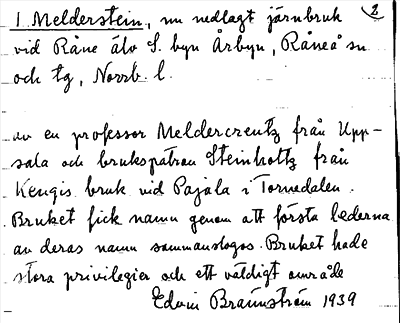 1. Melderstein, nu nedlagt järnbruk 2
vid Råne älv S. byn Årbyn, Råneå sn
och tg, Norrb. l.
av en professor Meldercreutz från Upp-
sala och brukspatron Steinholtz från
Kengis bruk vid Pajala i Tornedalen.
Bruket fick namn genom att första lederna
av deras namn sammanslogos. Bruket hade
stora privilegier och ett väldigt område
Edvin Brännström 1939